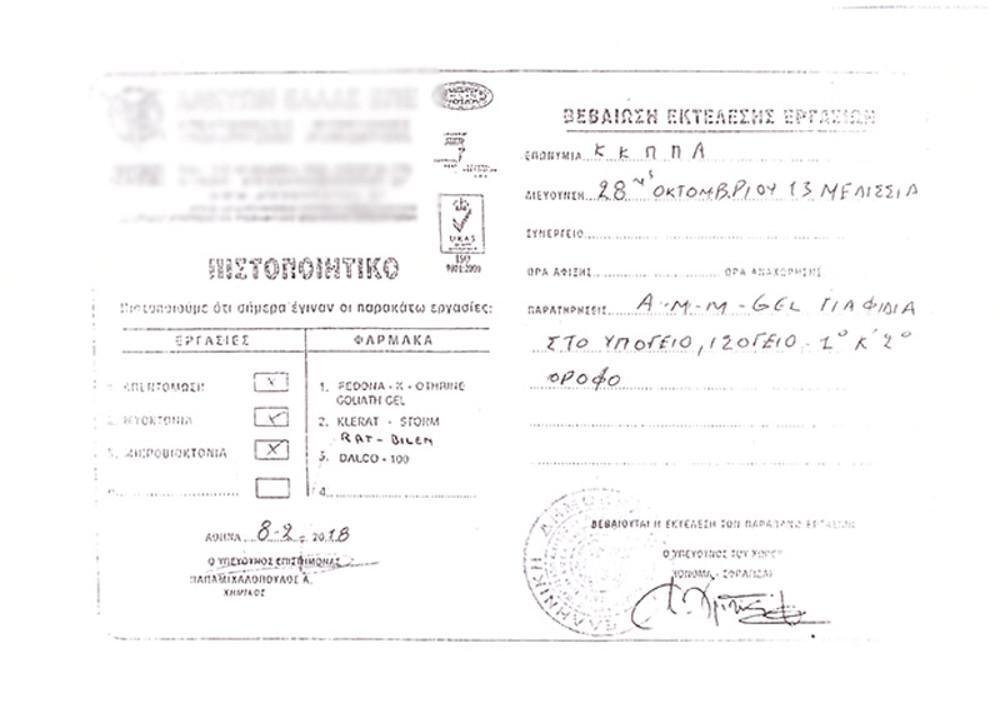 UKAS
ISO
9001:2000
ΠΙΣΤΟΠΟΙΗΤΙΚΟ
Πιστοποιούμε ότι σήμερα έγιναν οι παρακάτω εργασίες:
ΕΡΓΑΣΙΕΣ ΦΑΡΜΑΚΑ
ΑΠΕΝΤΟΜΩΣΗ X
1. FEDONA - K - OTHRINE
GOLIATH GEL
2. ΜΥΟΚΤΟΝΙΑ
2. KLERAT - STORM
RAT - BILEM
3. ΜΙΚΡΟΒΙΟΚΤΟΝΙΑ X
3. DALCO - 100
4.
ΑΘΗΝΑ 8-2- 2018
Ο ΥΠΕΥΘΥΝΟΣ ΕΠΙΣΤΗΜΟΝΑΣ
ΠΑΠΑΜΙΧΑΛΟΠΟΥΛΟΣ Α.
ΧΗΜΙΚΟΣ
ΒΕΒΑΙΩΣΗ ΕΚΤΕΛΕΣΗΣ ΕΡΓΑΣΙΩΝ
ΕΠΩΝΥΜΙΑ Κ Κ Π Π Α
ΔΙΕΥΘΥΝΣΗ 28ης ΟΚΤΩΜΒΡΙΟΥ 13 ΜΕΛΙΣΣΙΑ
ΣΥΝΕΡΓΕΙΟ
ΩΡΑ ΑΦΙΞΗΣ ΩΡΑ ΑΝΑΧΩΡΗΣΗΣ
ΠΑΡΑΤΗΡΗΣΕΙΣ Α-Μ-Μ-GEL ΓΙΑ ΦΙΔΙΑ
ΣΤΟ ΥΠΟΓΕΙΟ, ΙΣΟΓΕΙΟ - 1° Κ' 2°
ΟΡΟΦΟ
ΒΕΒΑΙΟΥΤΑΙ Η ΕΚΤΕΛΕΣΗ ΤΩΝ ΠΑΡΑΠΑΝΩ ΕΡΓΑΣΙΩΝ
Ο ΥΠΕΥΘΥΝΟΣ ΤΟΥ ΧΩΡΟΥ
(ΟΝΟΜΑ - ΣΦΡΑΓΙΔΑ)